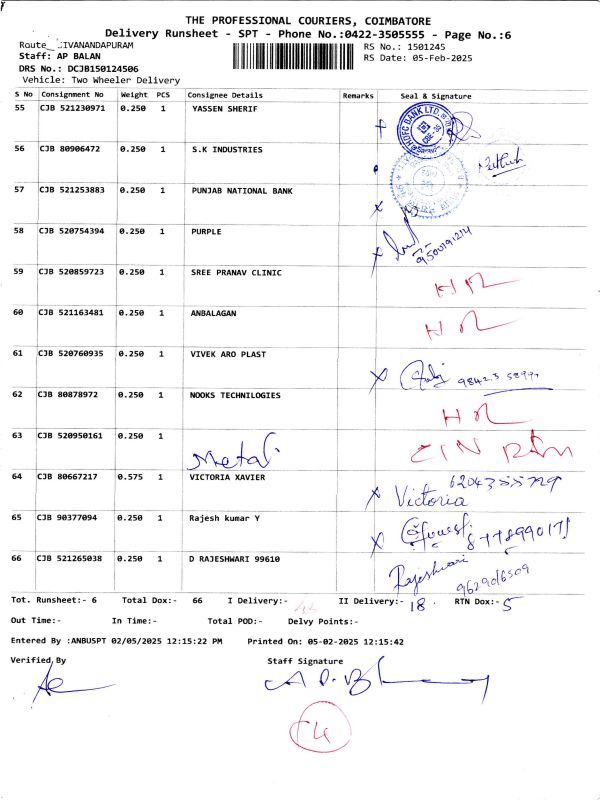 THE PROFESSIONAL COURIERS, COIMBATORE
Delivery Runsheet - SPT - Phone No.:0422-3505555 - Page No.:6
Route IVANANDAPURAM
RS No.: 1501245
Staff: AP BALAN
RS Date: 05-Feb-2025
DRS No.: DCJB150124506
Vehicle: Two Wheeler Delivery
S No Consignment No Weight PCS Consignee Details Remarks Seal & Signature
55 CJB 521230971 0.250 1 YASSEN SHERIF
HDFC BANK LTD.
56 CJB 80906472 0.250 1 S.K INDUSTRIES
57 CJB 521253883 0.250 1 PUNJAB NATIONAL BANK
58 CJB 520754394 0.250 1 PURPLE
9500191214
59 CJB 520859723 0.250 1 SREE PRANAV CLINIC
60 CJB 521163481 0.250 1 ANBALAGAN
61 CJB 520760935 0.250 1 VIVEK ARO PLAST
62 CJB 80878972 0.250 1 NOOKS TECHNILOGIES
63 CJB 520950161 0.250 1
Metal
64 CJB 80667217 0.575 1 VICTORIA XAVIER
Victoria
65 CJB 90377094 0.250 1 Rajesh kumar Y
66 CJB 521265038 0.250 1 D RAJESHWARI 99610
Rajeshwari
9629016509
Tot. Runsheet:- 6 Total Dox:- 66 I Delivery:- II Delivery:- 18 RTN Dox:- 5
Out Time:- In Time:- Total POD:- Delvy Points:-
Entered By :ANBUSPT 02/05/2025 12:15:22 PM Printed On: 05-02-2025 12:15:42
Verified By Staff Signature